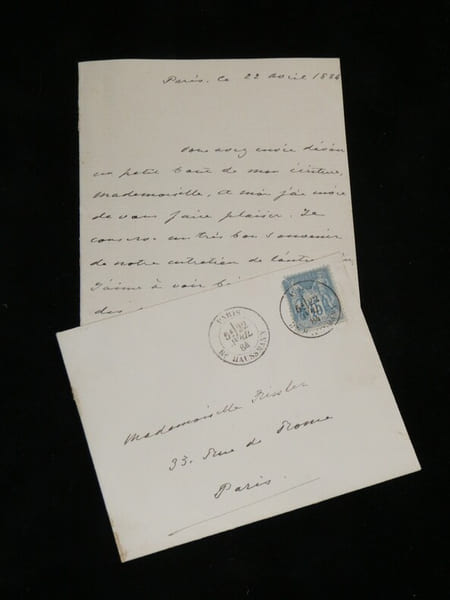 Paris, le 22 avril 1884
Vous avez envie
un petit bout de mon écriture,
Mademoiselle, et moi j'ai envie
de vous faire plaisir. Je
conserve un très bon souvenir
de notre entretien de l'autre
J'aime à voir
des
PARIS
22
AVRIL
84
BD HAUSSMANN
Mademoiselle
33. Rue de Rome
Paris.